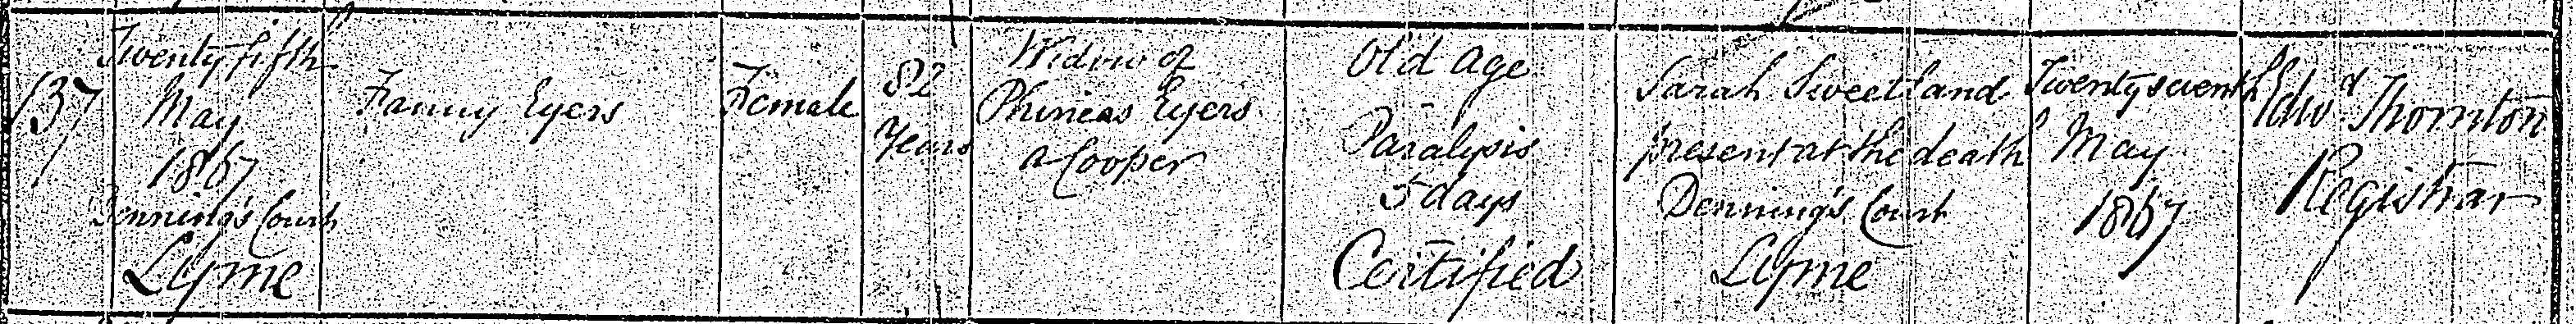 137
Twenty fifth
May
1867
Denning's Court
Lyme
Fanny Eyers
Female
82
Years
Widow of
Phineas Eyers
a Cooper
Old Age
Paralysis
5 days
Certified
Sarah Sweetland
present at the death
Denning's Court
Lyme
Twenty seventh
May
1867
Edwd Thornton
Registrar